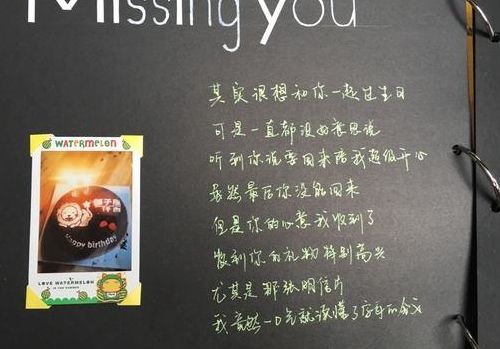 Missing you
其实很想和你一起过生日
可是一直都没好意思说
听到你说要回来陪我超级开心
虽然最后你没能回来
但是你的心意我收到了
收到你的礼物特别高兴
尤其是那张明信片
我竟然一口气就读懂了所有的含义
WATERMELON
Happy birthday
LOVE WATERMELON
IN THE SUMMER